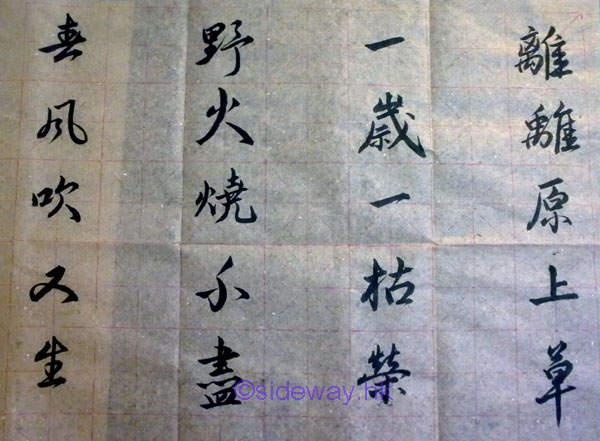 離離原上草
一歲一枯榮
野火燒不盡
春風吹又生
©sideway.hk